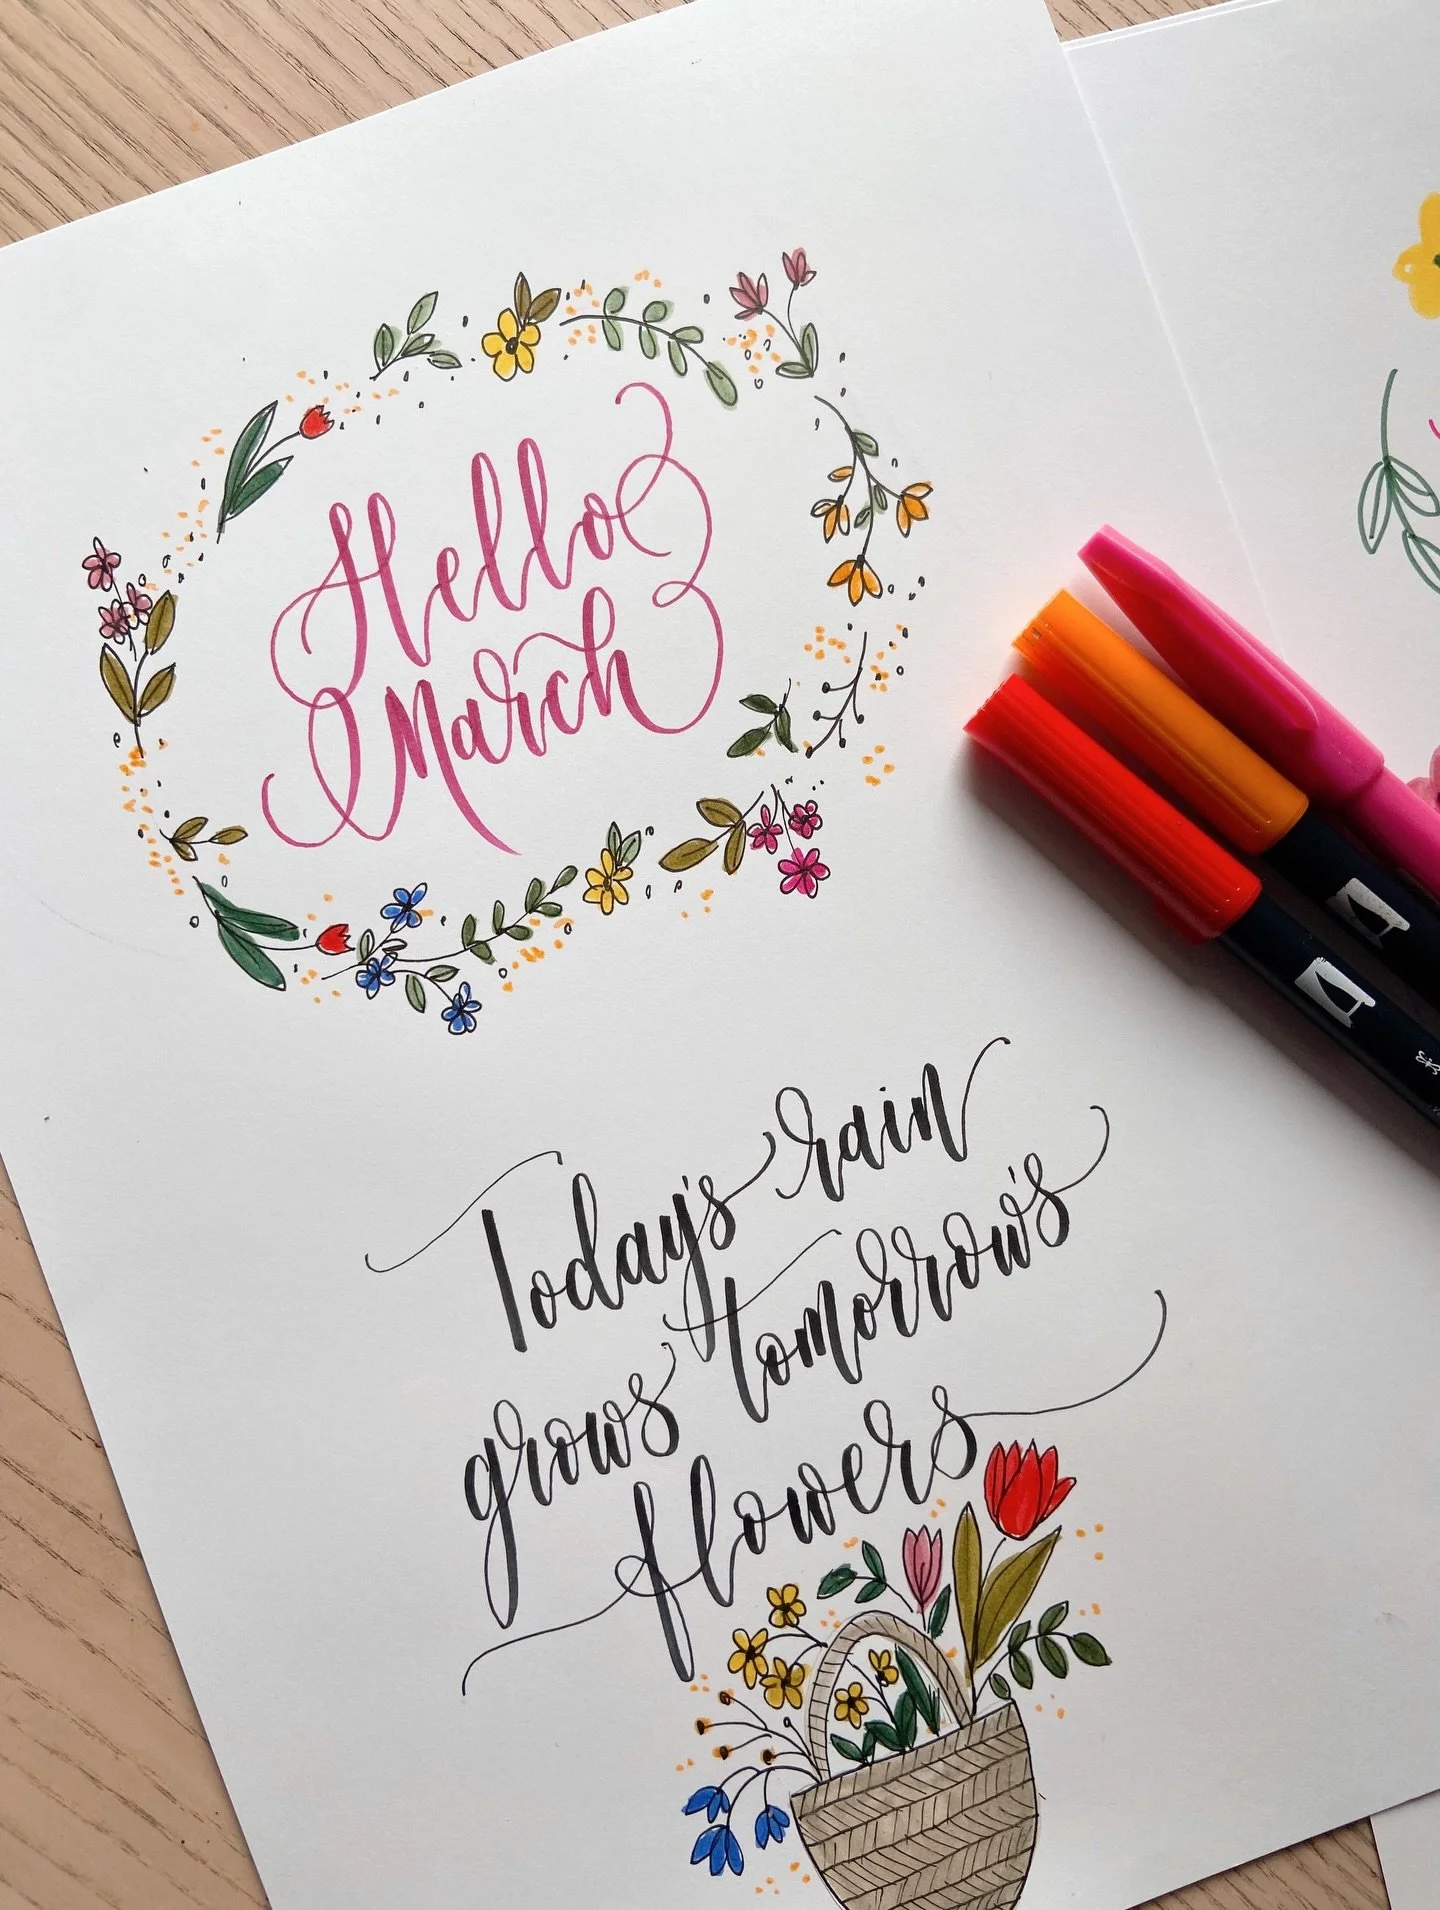 Hello
March
Today's rain
grows tomorrow's
flowers